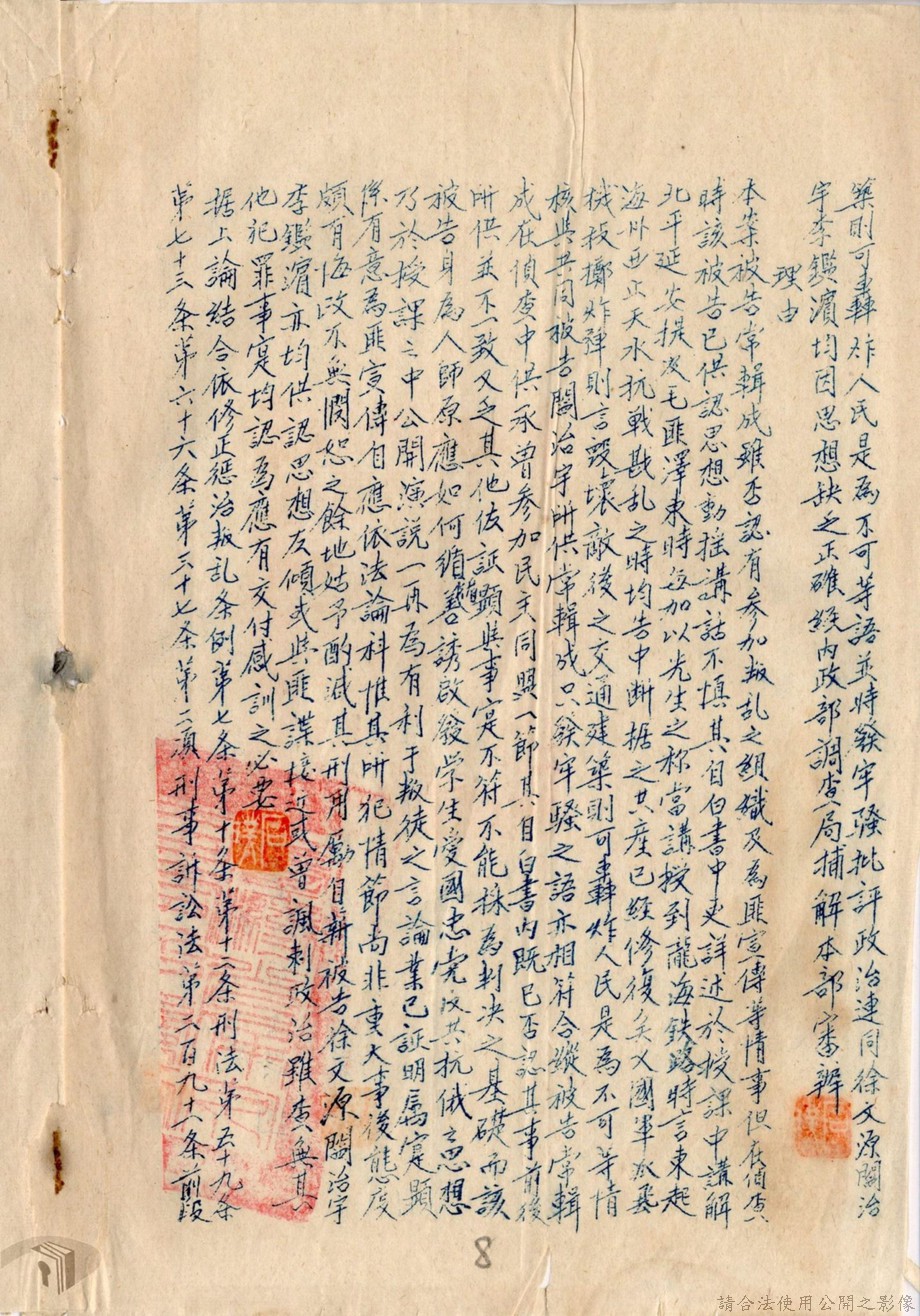 築則可轟炸人民是為不可等語並時發牢騷批評政治連同徐文源閻治
宇李鑑濱均因思想缺乏正確經內政部調查局捕解本部審辦
理由
本案被告常輯成雖否認有參加叛乱之組織及為匪宣傳等情事但在偵查
時該被告已供認思想動搖講話不慎其自白書中更詳述於授課中講解
北平延安提及毛匪澤東時每加以先生之称當講授到隴海鉄路時言東起
海州西止天水抗戰戡乱之時均告中断据之共產已經修復矣又國軍派飛
机投擲炸彈則言毀壞敵後之交通建築則可轟炸人民是為不可等情
核與共同被告閻治宇所供常輯成只發牢騷之語亦相符合縱被告常輯
成在偵查中供承曾參加民主同盟一節其自白書內既已否認其事前後
所供並不一致又乏其他佐証顯與事实不符不能採為判決之基礎而該
被告身為人師原應如何循循善誘啟發学生愛國忠党反共抗俄之思想
乃於授課之中公開演說一再為有利于叛徒之言論業已証明屬实顯
係有意為匪宣傳自應依法論科惟其所犯情節尚非重大事後態度
頗有悔改不無憫恕之餘地姑予酌減其刑用勵自新被告徐文源閻治宇
李鑑濱亦均供認思想反傾或與匪諜接近或曾諷刺政治雖查無其
他犯罪事实均認為應有交付感訓之必要
据上論結合依修正懲治叛乱条例第七条第十条第十二条刑法第五十九条
第七十三条第六十六条第三十七条第二項刑事訴訟法第二百九十一条前段
8
請合法使用公開之影像